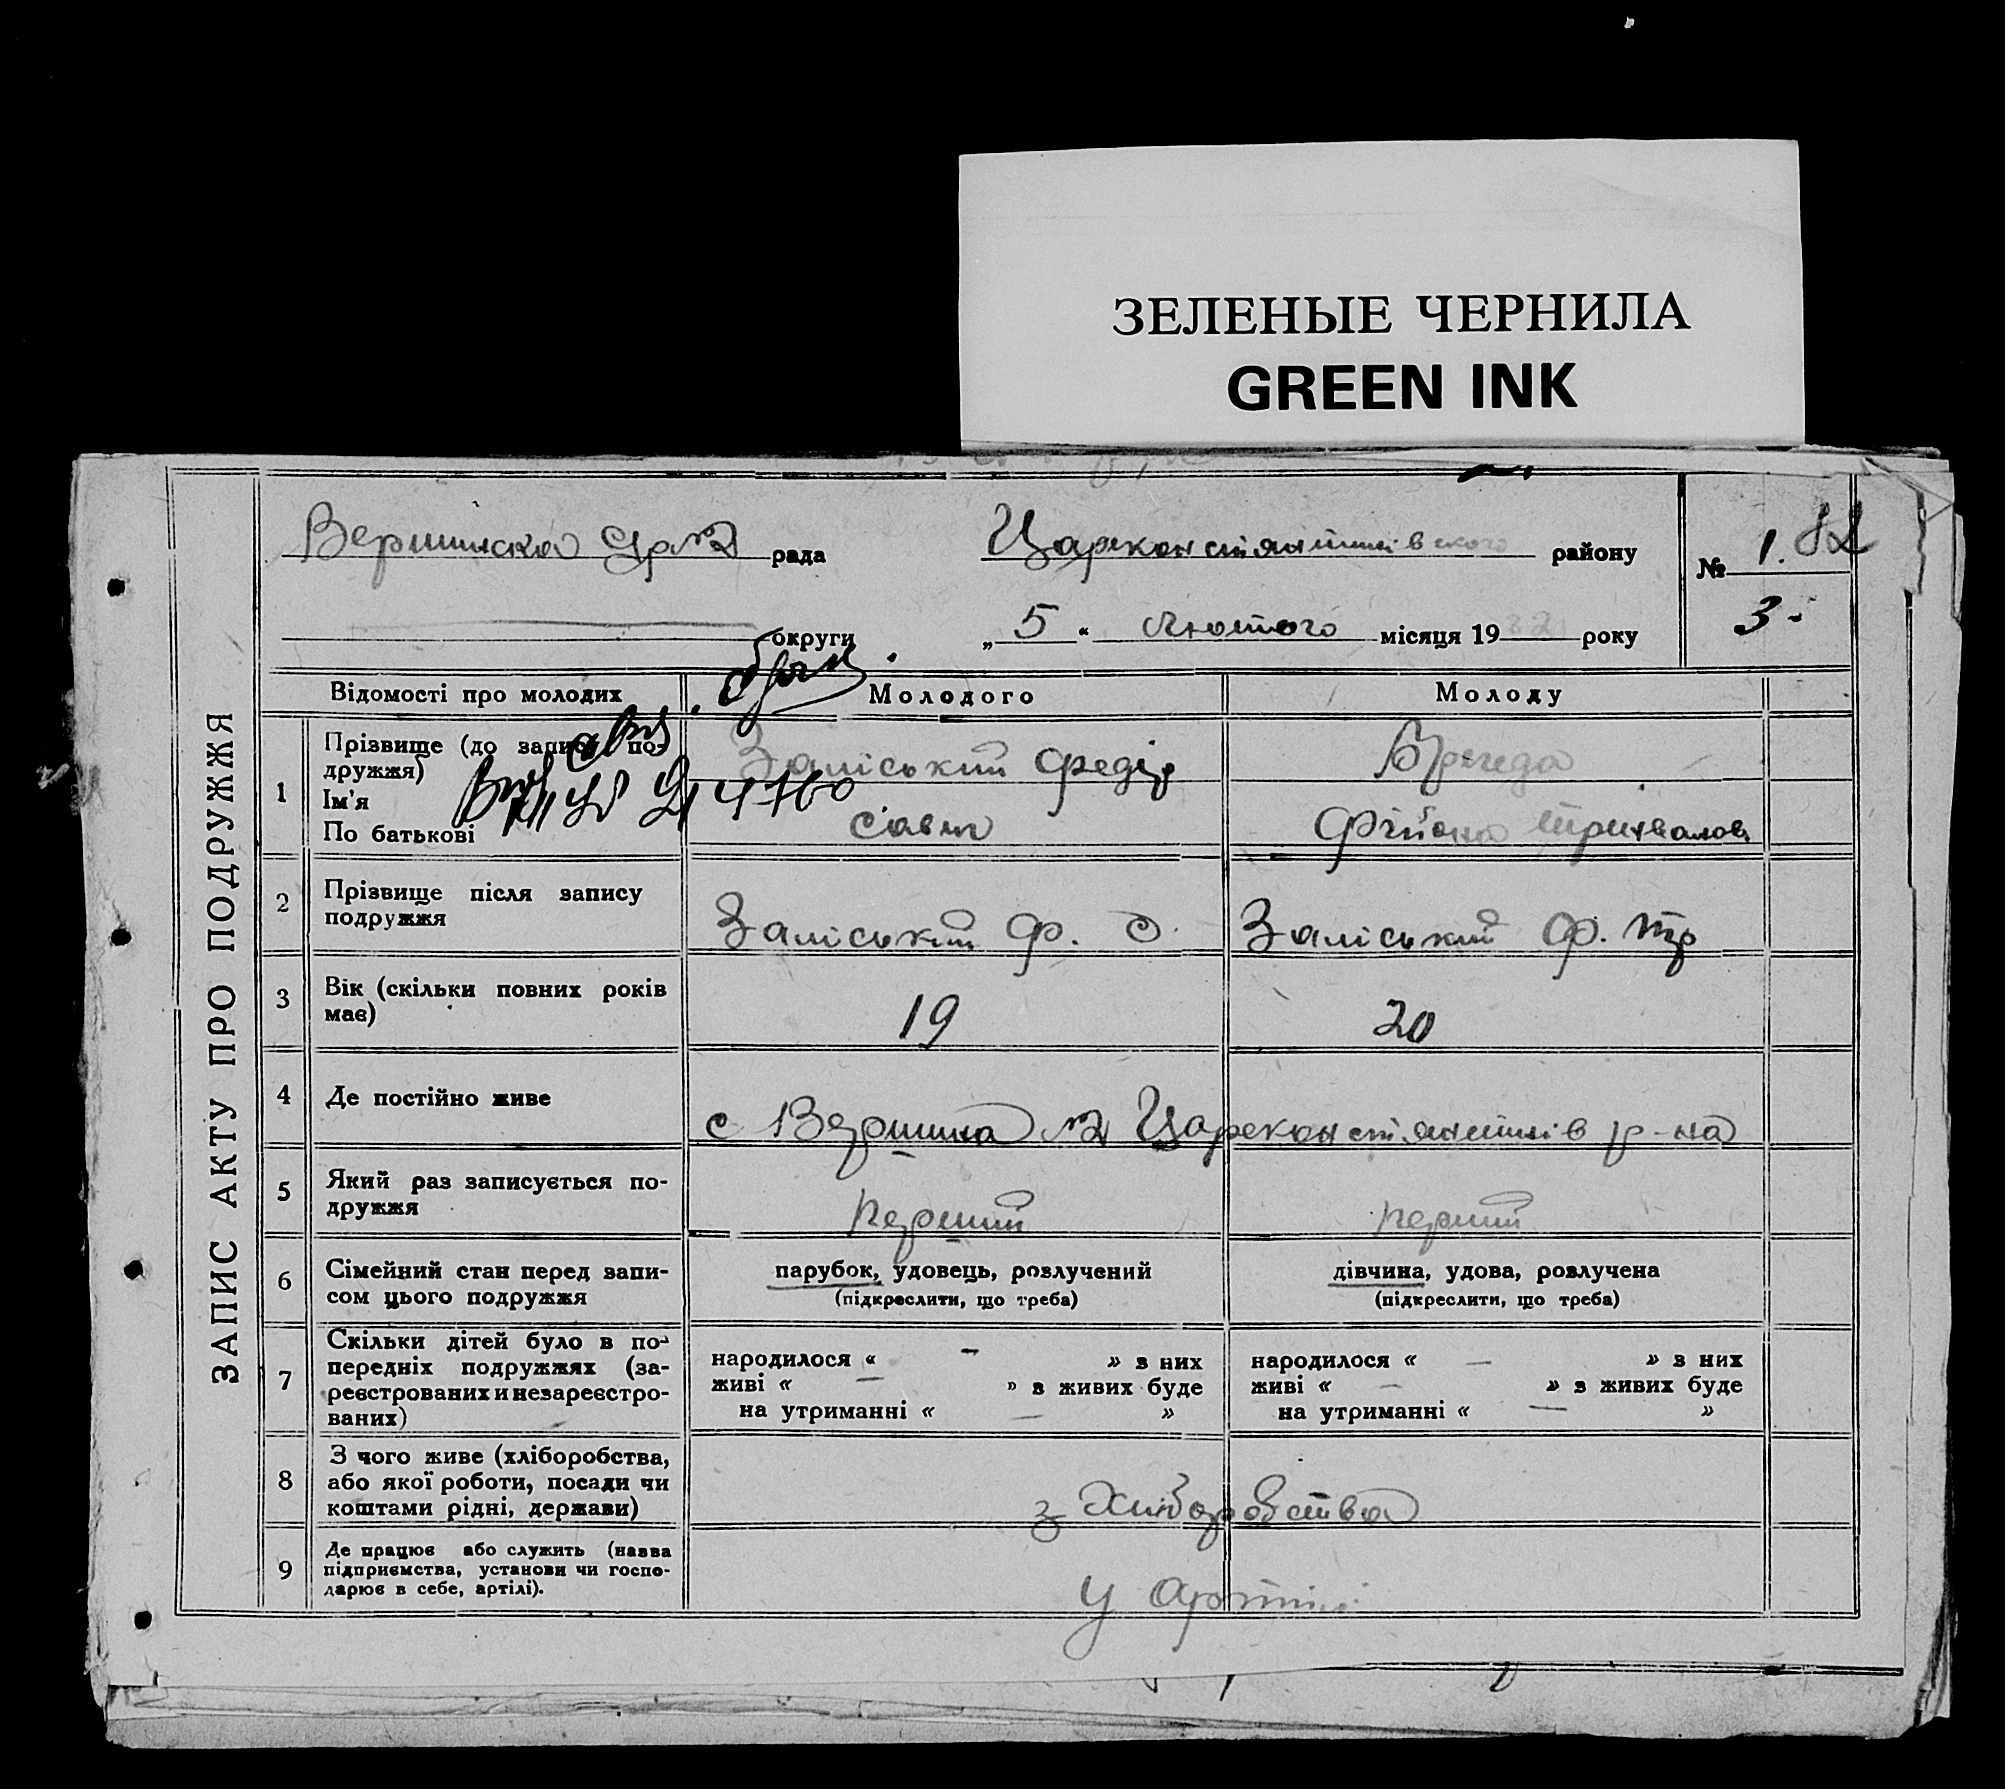 ЗЕЛЕНЫЕ ЧЕРНИЛА
GREEN INK
ЗАПИС АКТУ ПРО ПОДРУЖЖЯ
рада
Царекон району
№ 1.
округи „ 5 “ Лютого місяця 19 року
3-
Відомості про молодих Молодого Молоду
1 Прізвище (до запису по-
дружжя) Заліський Федір
Ім'я
По батькові Сави
2 Прізвище після запису
подружжя
Заліський Ф. С. Заліський Ф.
3 Вік (скільки повних років
має)
19 20
4 Де постійно живе
с Вершина р-на
5 Який раз записується по-
дружжя
перший перший
6 Сімейний стан перед запи-
сом цього подружжя
парубок, удовець, розлучений дівчина, удова, розлучена
(підкреслити, що треба) (підкреслити, що треба)
7 Скільки дітей було в по-
передніх подружжях (за-
реєстрованих и незареєстро-
ваних)
народилося « - » з них народилося « — » з них
живі « — » з живих буде живі « — » з живих буде
на утриманні « — » на утриманні « — »
8 З чого живе (хліборобства,
або якої роботи, посади чи
коштами рідні, держави)
з
9 Де працює або служить (назва
підприємства, установи чи госпо-
дарює в себе, артілі).
у артілі